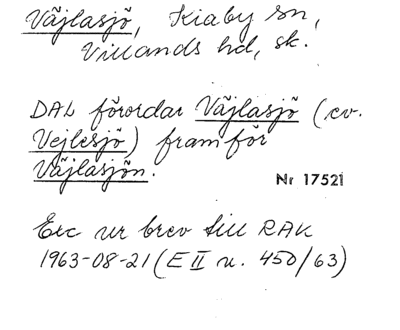 Väjlasjö, Kiaby sn,
Villands hd, sk.
DAL förordar Väjlasjö (ev.
Vejlesjö) framför
Väjlasjön.
Nr 17521
Exc ur brev till RAK
1963-08-21 (E II u. 450/63)